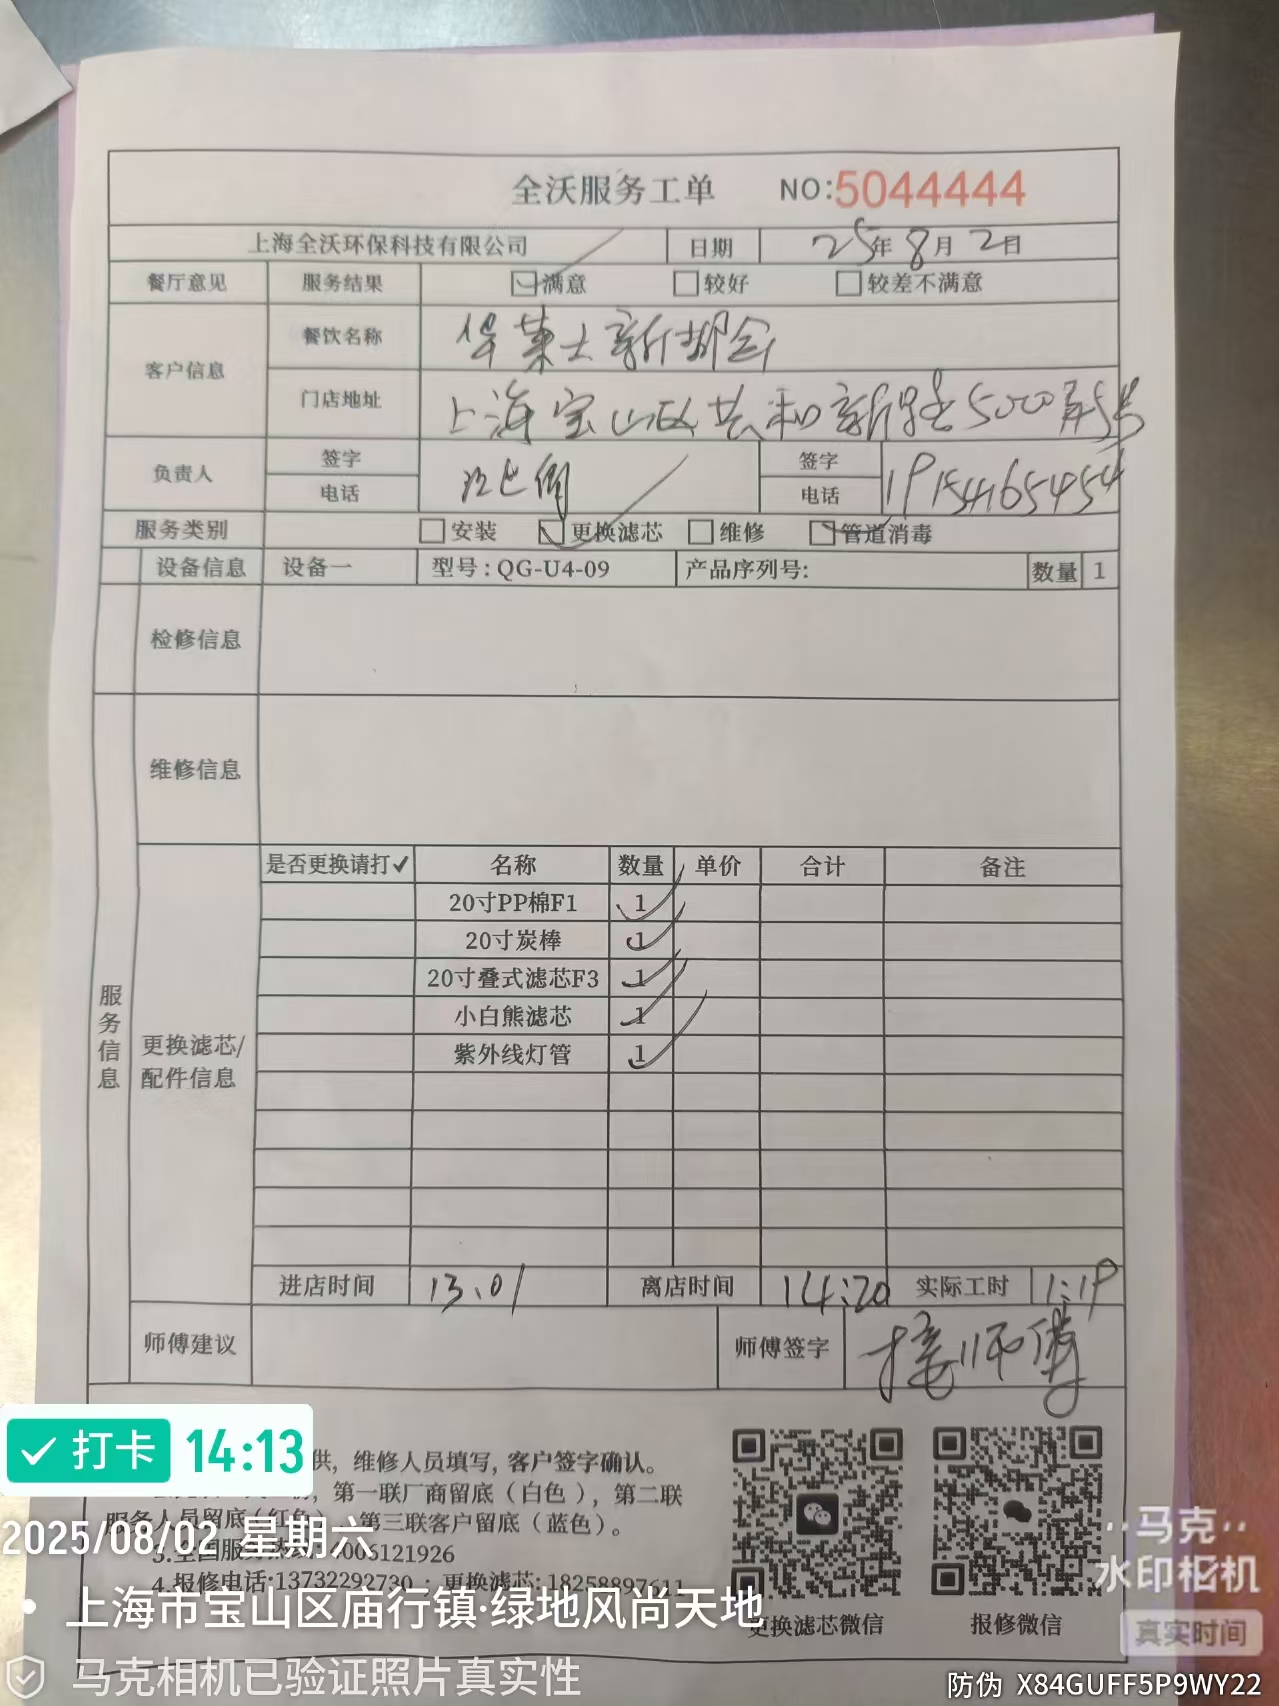 全沃服务工单 NO:5044444
上海全沃环保科技有限公司 日期 25年8月2日
餐厅意见 服务结果 满意 较好 较差不满意
客户信息 餐饮名称 华莱士新湖会
门店地址 上海宝山区共和新路5000弄5号
负责人 签字 签字
电话 电话 19154165454
服务类别 安装 更换滤芯 维修 管道消毒
设备信息 设备一 型号:QG-U4-09 产品序列号: 数量 1
检修信息
维修信息
服务信息
更换滤芯/
配件信息
是否更换请打✓ 名称 数量 单价 合计 备注
20寸PP棉F1 1
20寸炭棒 1
20寸叠式滤芯F3 1
小白熊滤芯 1
紫外线灯管 1
进店时间 13.01 离店时间 14:20 实际工时 1:19
师傅建议 师傅签字 接师傅
供,维修人员填写,客户签字确认。
第一联厂商留底(白色),第二联
服务人员留底(红色),第三联客户留底(蓝色)。
3.全国服务热线 4006121926
4.报修电话:13732292730 ; 更换滤芯:18258897611
更换滤芯微信 报修微信
打卡 14:13
2025/08/02 星期六
上海市宝山区庙行镇·绿地风尚天地
马克相机已验证照片真实性
马克
水印相机
真实时间
防伪 X84GUFF5P9WY22